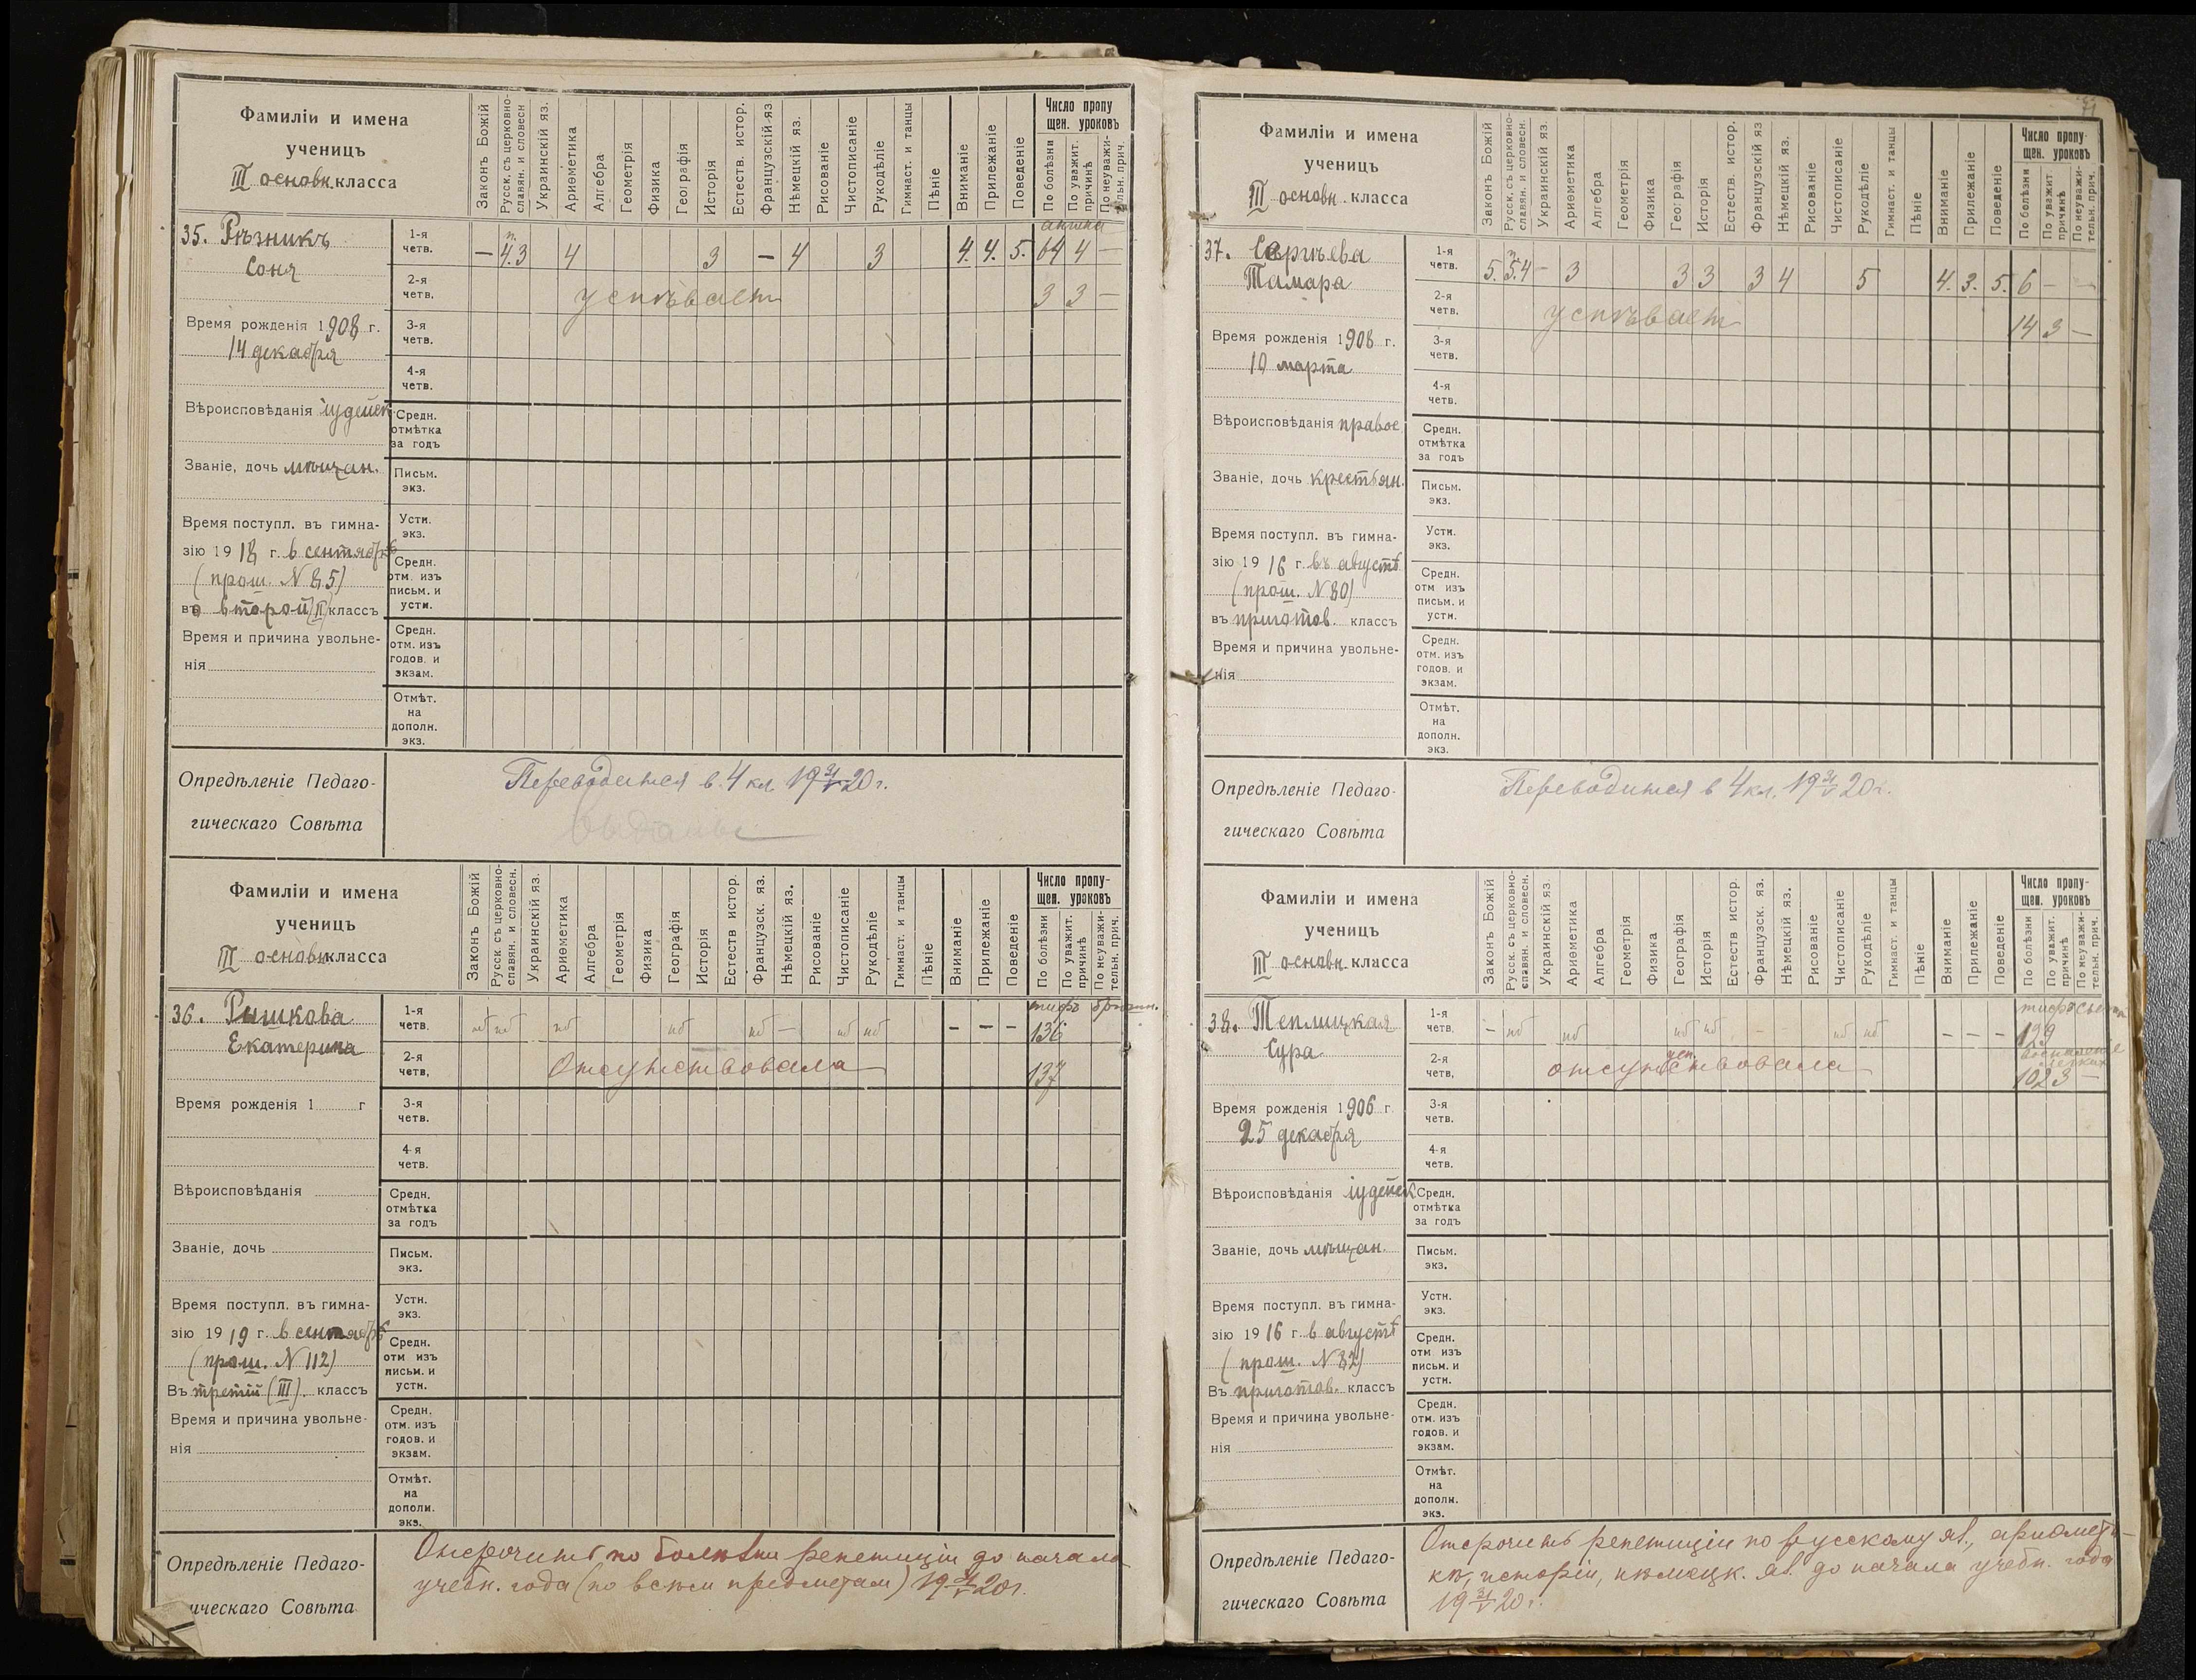 Фамиліи и имена
ученицъ
III основн. класса
Законъ Божій
Русск. съ церковно-
славян. и словесн
Украинскій яз.
Ариѳметика
Алгебра
Геометрія
Физика
Географія
Исторія
Естеств. истор.
Французскій яз
Нѣмецкій яз.
Рисованіе
Чистописаніе
Рукодѣліе
Гимнаст. и танцы
Пѣніе
Вниманіе
Прилежаніе
Поведеніе
Число пропу
щен. уроковъ
По болѣзни
По уважит.
причинѣ
По неуважи-
тельн. прич.
35. Рѣзникъ
Соня
1-я
четв.
— 4.3 4 3 — 4 3 4. 4. 5. 64 4 —
2-я
четв.
успѣвает 3 3 —
Время рожденія 1908 г.
14 декабря
3-я
четв.
4-я
четв.
Вѣроисповѣданія іудейск
Средн.
отмѣтка
за годъ
Званіе, дочь мѣщан.
Письм.
экз.
Время поступл. въ гимна-
зію 1918 г. в сентябрѣ
(прош. N 85)
во второй (II) классъ
Устн.
экз.
Средн.
отм. изъ
письм. и
устн.
Время и причина увольне-
нія
Средн.
отм. изъ
годов. и
экзам.
Отмѣт.
на
дополн.
экз.
Опредѣленіе Педаго-
гическаго Совѣта
Переводится в 4 кл. 19 31/V 20 г.
Фамиліи и имена
ученицъ
III основн. класса
Законъ Божій
Русск. съ церковно-
славян. и словесн.
Украинскій яз.
Ариѳметика
Алгебра
Геометрія
Физика
Географія
Исторія
Естеств истор.
Французск. яз.
Нѣмецкій яз.
Рисованіе
Чистописаніе
Рукодѣліе
Гимнаст. и танцы
Пѣніе
Вниманіе
Прилежаніе
Поведеніе
Число пропу-
щен. уроковъ
По болѣзни
По уважит.
причинѣ
По неуважи-
тельн. прич.
36. Рышкова
Екатерина
1-я
четв.
тифъ брюшн.
нб нб нб нб нб — нб нб — — — 136
2-я
четв.
Отсутствовала 137
Время рожденія 1 г
3-я
четв.
4-я
четв.
Вѣроисповѣданія
Средн.
отмѣтка
за годъ
Званіе, дочь
Письм.
экз.
Время поступл. въ гимна-
зію 1919 г. в сентябрѣ
(прош. N 112)
Въ третій (III). классъ
Устн.
экз.
Средн.
отм изъ
письм. и
устн.
Время и причина увольне-
нія
Средн.
отм. изъ
годов. и
экзам.
Отмѣт.
на
дополн.
экз.
Опредѣленіе Педаго-
ическаго Совѣта
Отсрочить по болѣзни репетиціи до начала
учебн. года (по всѣм предметам) 19 31/V 20 г.
Фамиліи и имена
ученицъ
III основн. класса
Законъ Божій
Русск. съ церковно-
славян. и словесн.
Украинскій яз.
Ариѳметика
Алгебра
Геометрія
Физика
Географія
Исторія
Естеств. истор.
Французскій яз
Нѣмецкій яз.
Рисованіе
Чистописаніе
Рукодѣліе
Гимнаст. и танцы
Пѣніе
Вниманіе
Прилежаніе
Поведеніе
Число пропу
щен. уроковъ
По болѣзни
По уважит.
причинѣ
По неуважи-
тельн. прич.
37. Сергѣева
Тамара
1-я
четв.
5. 5.4 — 3 3 3 3 4 5 4. 3. 5. 6 — —
2-я
четв.
успѣвает 14 3 —
Время рожденія 1908 г.
10 марта
3-я
четв.
4-я
четв.
Вѣроисповѣданія правос
Средн.
отмѣтка
за годъ
Званіе, дочь крестьян.
Письм.
экз.
Время поступл. въ гимна-
зію 1916 г. въ августѣ
(прош. N 80)
въ приготов. классъ
Устн.
экз.
Средн.
отм изъ
письм. и
устн.
Время и причина увольне-
нія
Средн.
отм. изъ
годов. и
экзам.
Отмѣт.
на
дополн.
экз.
Опредѣленіе Педаго-
гическаго Совѣта
Переводится в 4 кл. 19 31/V 20 г.
Фамиліи и имена
ученицъ
III основн. класса
Законъ Божій
Русск. съ церковно-
славян. и словесн.
Украинскій яз.
Ариѳметика
Алгебра
Геометрія
Физика
Географія
Исторія
Естеств истор.
Французск. яз.
Нѣмецкій яз.
Рисованіе
Чистописаніе
Рукодѣліе
Гимнаст. и танцы
Пѣніе
Вниманіе
Прилежаніе
Поведеніе
Число пропу-
щен. уроковъ
По болѣзни
По уважит.
причинѣ
По неуважи-
тельн. прич.
38. Теплицкая
Сура
1-я
четв.
— нб нб нб нб — нб нб — — — 129
2-я
четв.
воспаленіе
легких
отсутствовала 102 3 —
Время рожденія 1906 г.
25 декабря
3-я
четв.
4-я
четв.
Вѣроисповѣданія іудейск
Средн.
отмѣтка
за годъ
Званіе, дочь мѣщан.
Письм.
экз.
Время поступл. въ гимна-
зію 1916 г. в августѣ
(прош. N 82)
Въ приготов. классъ
Устн.
экз.
Средн.
отм изъ
письм. и
устн.
Время и причина увольне-
нія
Средн.
отм. изъ
годов. и
экзам.
Отмѣт.
на
дополн.
экз.
Опредѣленіе Педаго-
гическаго Совѣта
Отсрочить репетиціи по русскому яз., ариѳмети-
кѣ, исторіи, нѣмецк. яз. до начала учебн. года
19 31/V 20 г.